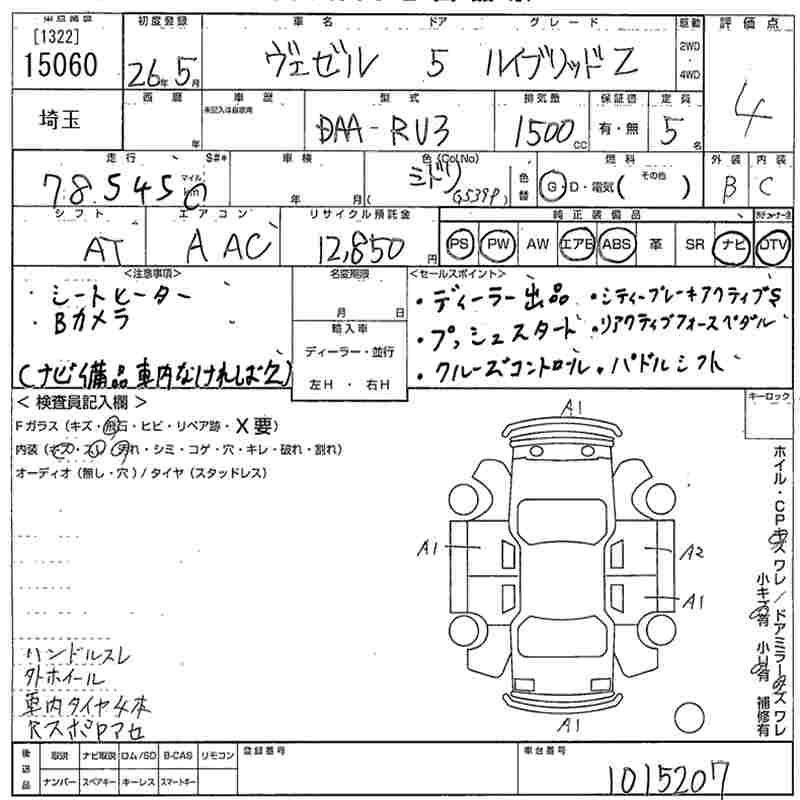 [1322]
15060
初度登録
26年 5月
車名
ヴェゼル
ドア
5
グレード
ハイブリッドZ
駆動
2WD
4WD
評価点
4
埼玉
西暦
年
車歴
未記入は自家用
型式
DAA-RU3
排気量
1500cc
保証書
有・無
定員
5名
走行
78545
マイル
km
S#*
車検
年 月
色(Col.No)
ミドリ
(G539P)
色替
燃料
G・D・電気(その他)
外装
B
内装
C
シフト
AT
エアコン
A AC
リサイクル預託金
12,850円
純正装備品
PS PW AW エアB ABS 革 SR ナビ DTV
<注意事項>
・シートヒーター
・Bカメラ
(ナビ備品車内なければ欠)
名変期限
月 日
輸入車
ディーラー・並行
左H・右H
<セールスポイント>
・ディーラー出品 ・シティーブレーキアクティブS
・プッシュスタート ・リアクティブフォースペダル
・クルーズコントロール ・パドルシフト
<検査員記入欄>
Fガラス(キズ・飛石・ヒビ・リペア跡・X要)
内装(キズ・スレ・汚れ・シミ・コゲ・穴・キレ・破れ・割れ)
オーディオ(無し・穴)/タイヤ(スタッドレス)
キーロック
A1
A1
A2
A1
A1
ホイル・CPキズ ワレ/ドアミラーキズ ワレ
小キズ有 小U有 補修有
ハンドルスレ
外ホイール
車内タイヤ4本
後送品
取説 ナビ取説 ロム/SD B-CAS リモコン
ナンバー スペアキー キーレス スマートキー
登録番号
車台番号
1015207